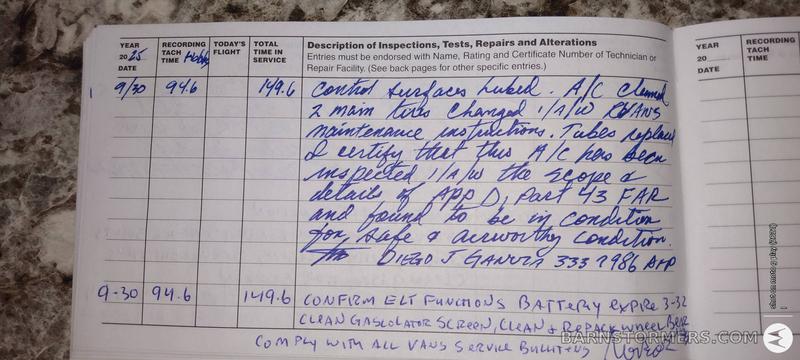 YEAR 2025 DATE
RECORDING TACH TIME Hobbs
TODAY'S FLIGHT
TOTAL TIME IN SERVICE
Description of Inspections, Tests, Repairs and Alterations
Entries must be endorsed with Name, Rating and Certificate Number of Technician or
Repair Facility. (See back pages for other specific entries.)
9/30 94.6 149.6 Control surfaces lubed. A/C cleaned
2 main tires changed I/A/W VANS
maintenance instructions. Tubes replaced
I certify that this A/C has been
inspected I/A/W the scope &
details of App D, Part 43 FAR
and found to be in condition
for safe & airworthy condition.
DIEGO J 333 7986 A&P
9-30 94.6 149.6 CONFIRM ELT FUNCTIONS BATTERY EXPIRE 3-32
CLEAN GASCOLATOR SCREEN, CLEAN & REPACK WHEEL
COMPLY WITH ALL VANS SERVICE BULLITENS
YEAR 20 DATE
RECORDING TACH TIME
BARNSTORMERS.COM